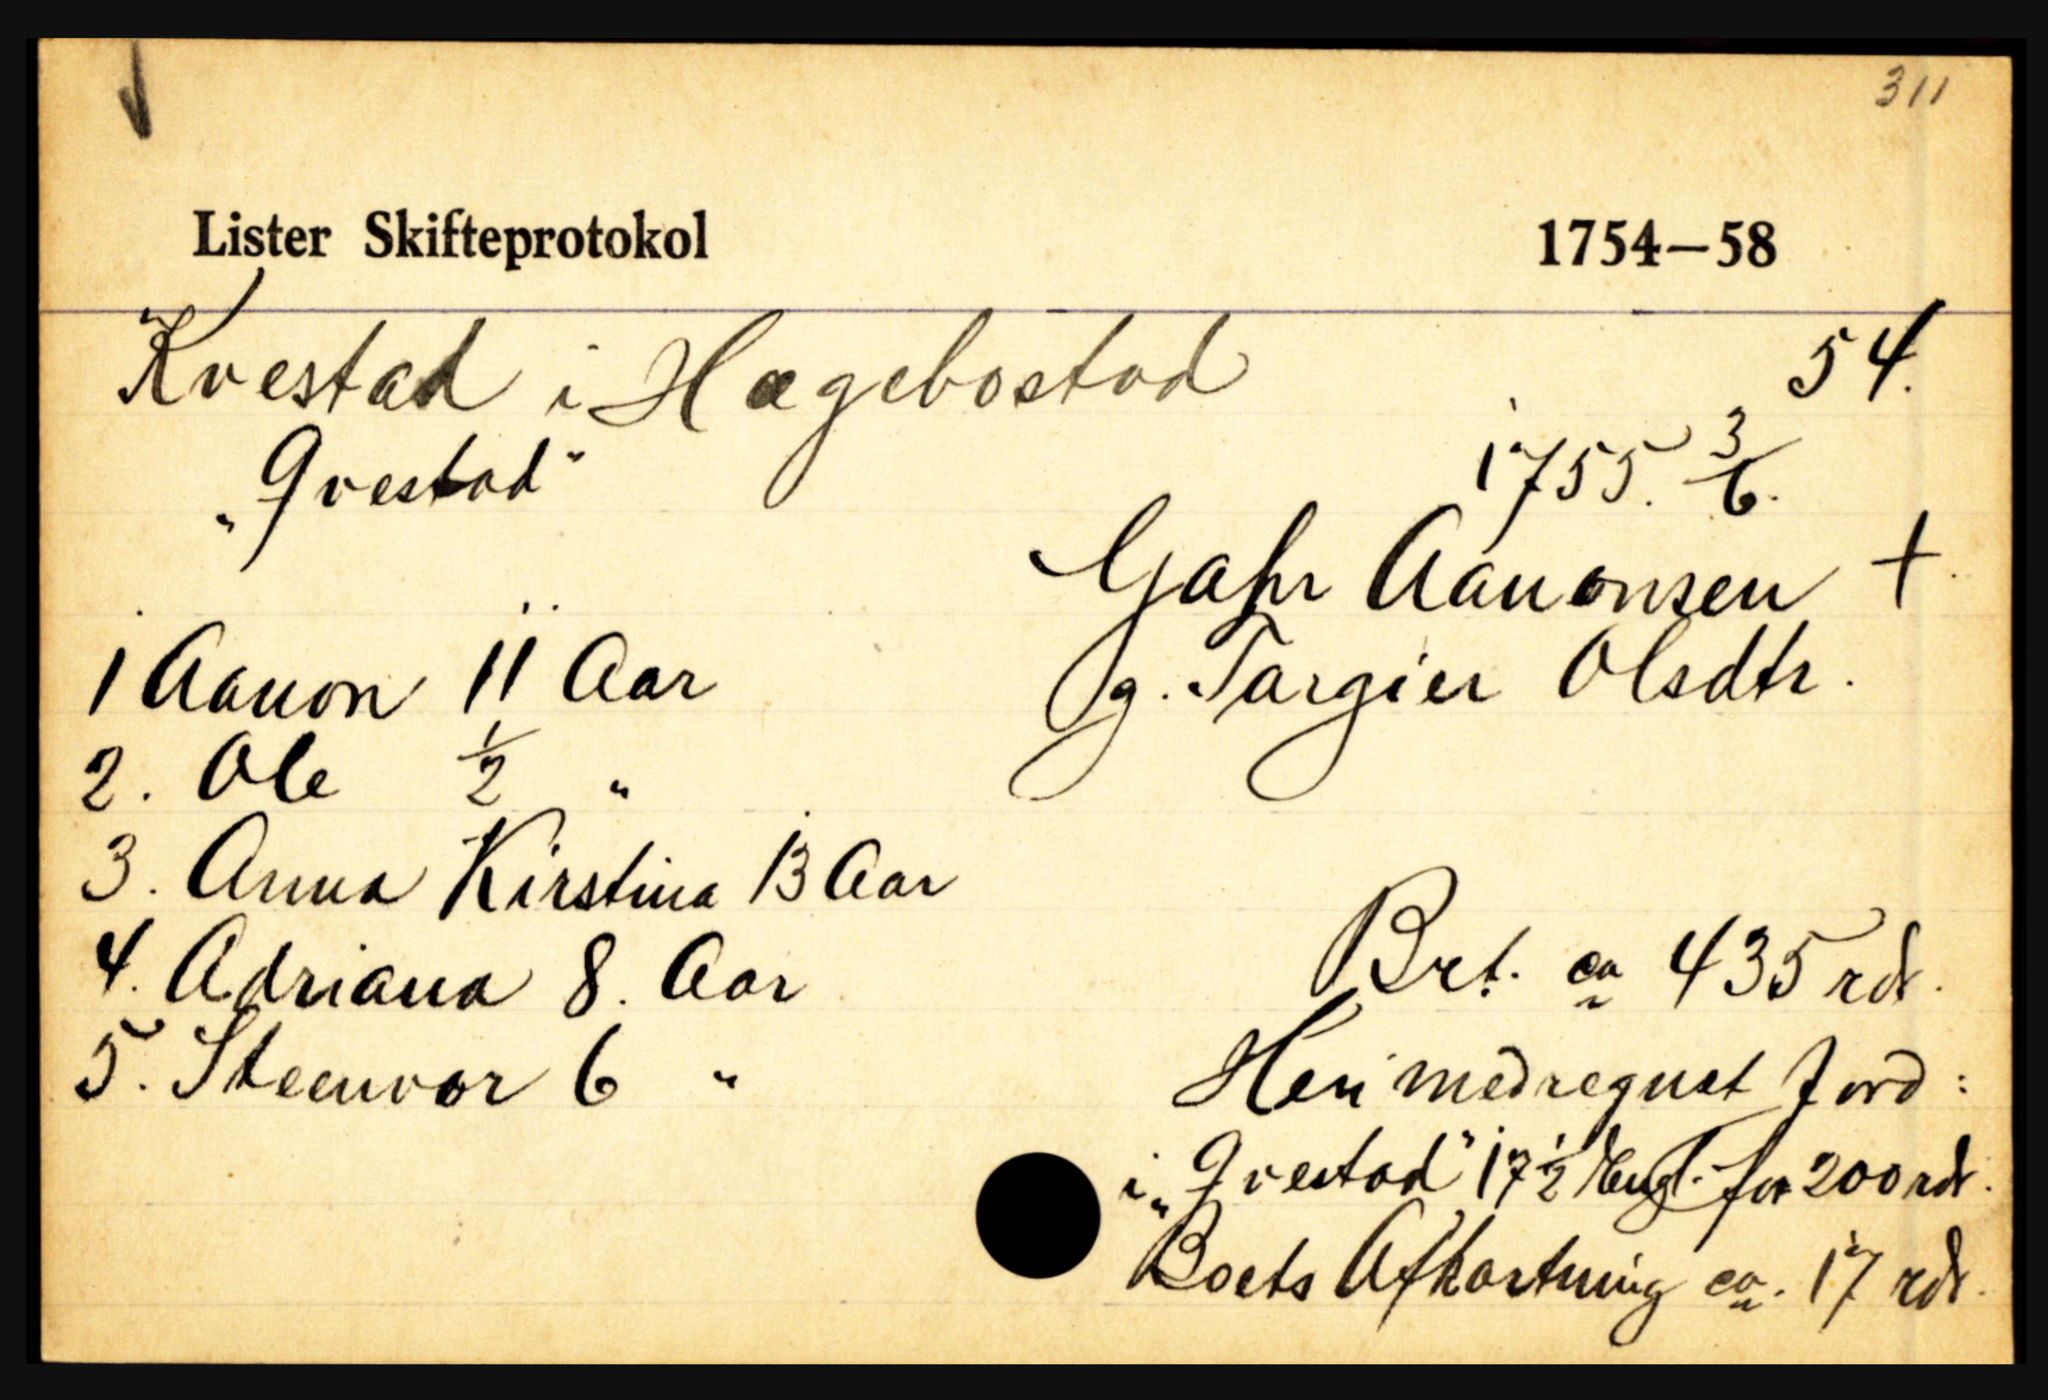 311
Lister Skifteprotokol 1754—58
Kvestad i Hægebostad 54.
„Qvestad“ 1755. 3/6.
Gahr Aanonsen +
g. Targier Olsdtr.
1 Aanon 11 Aar
2. Ole 1/2 "
3. Anna Kirstina 13 Aar
4. Adriana 8. Aar
5. Steenvor 6 "
Brt. ca 435 rdr.
Heri medregnet Jord:
i „Qvestad“ 17 1/2 Engl. for 200 rdr.
Boets Afkortning ca. 17 rdr.